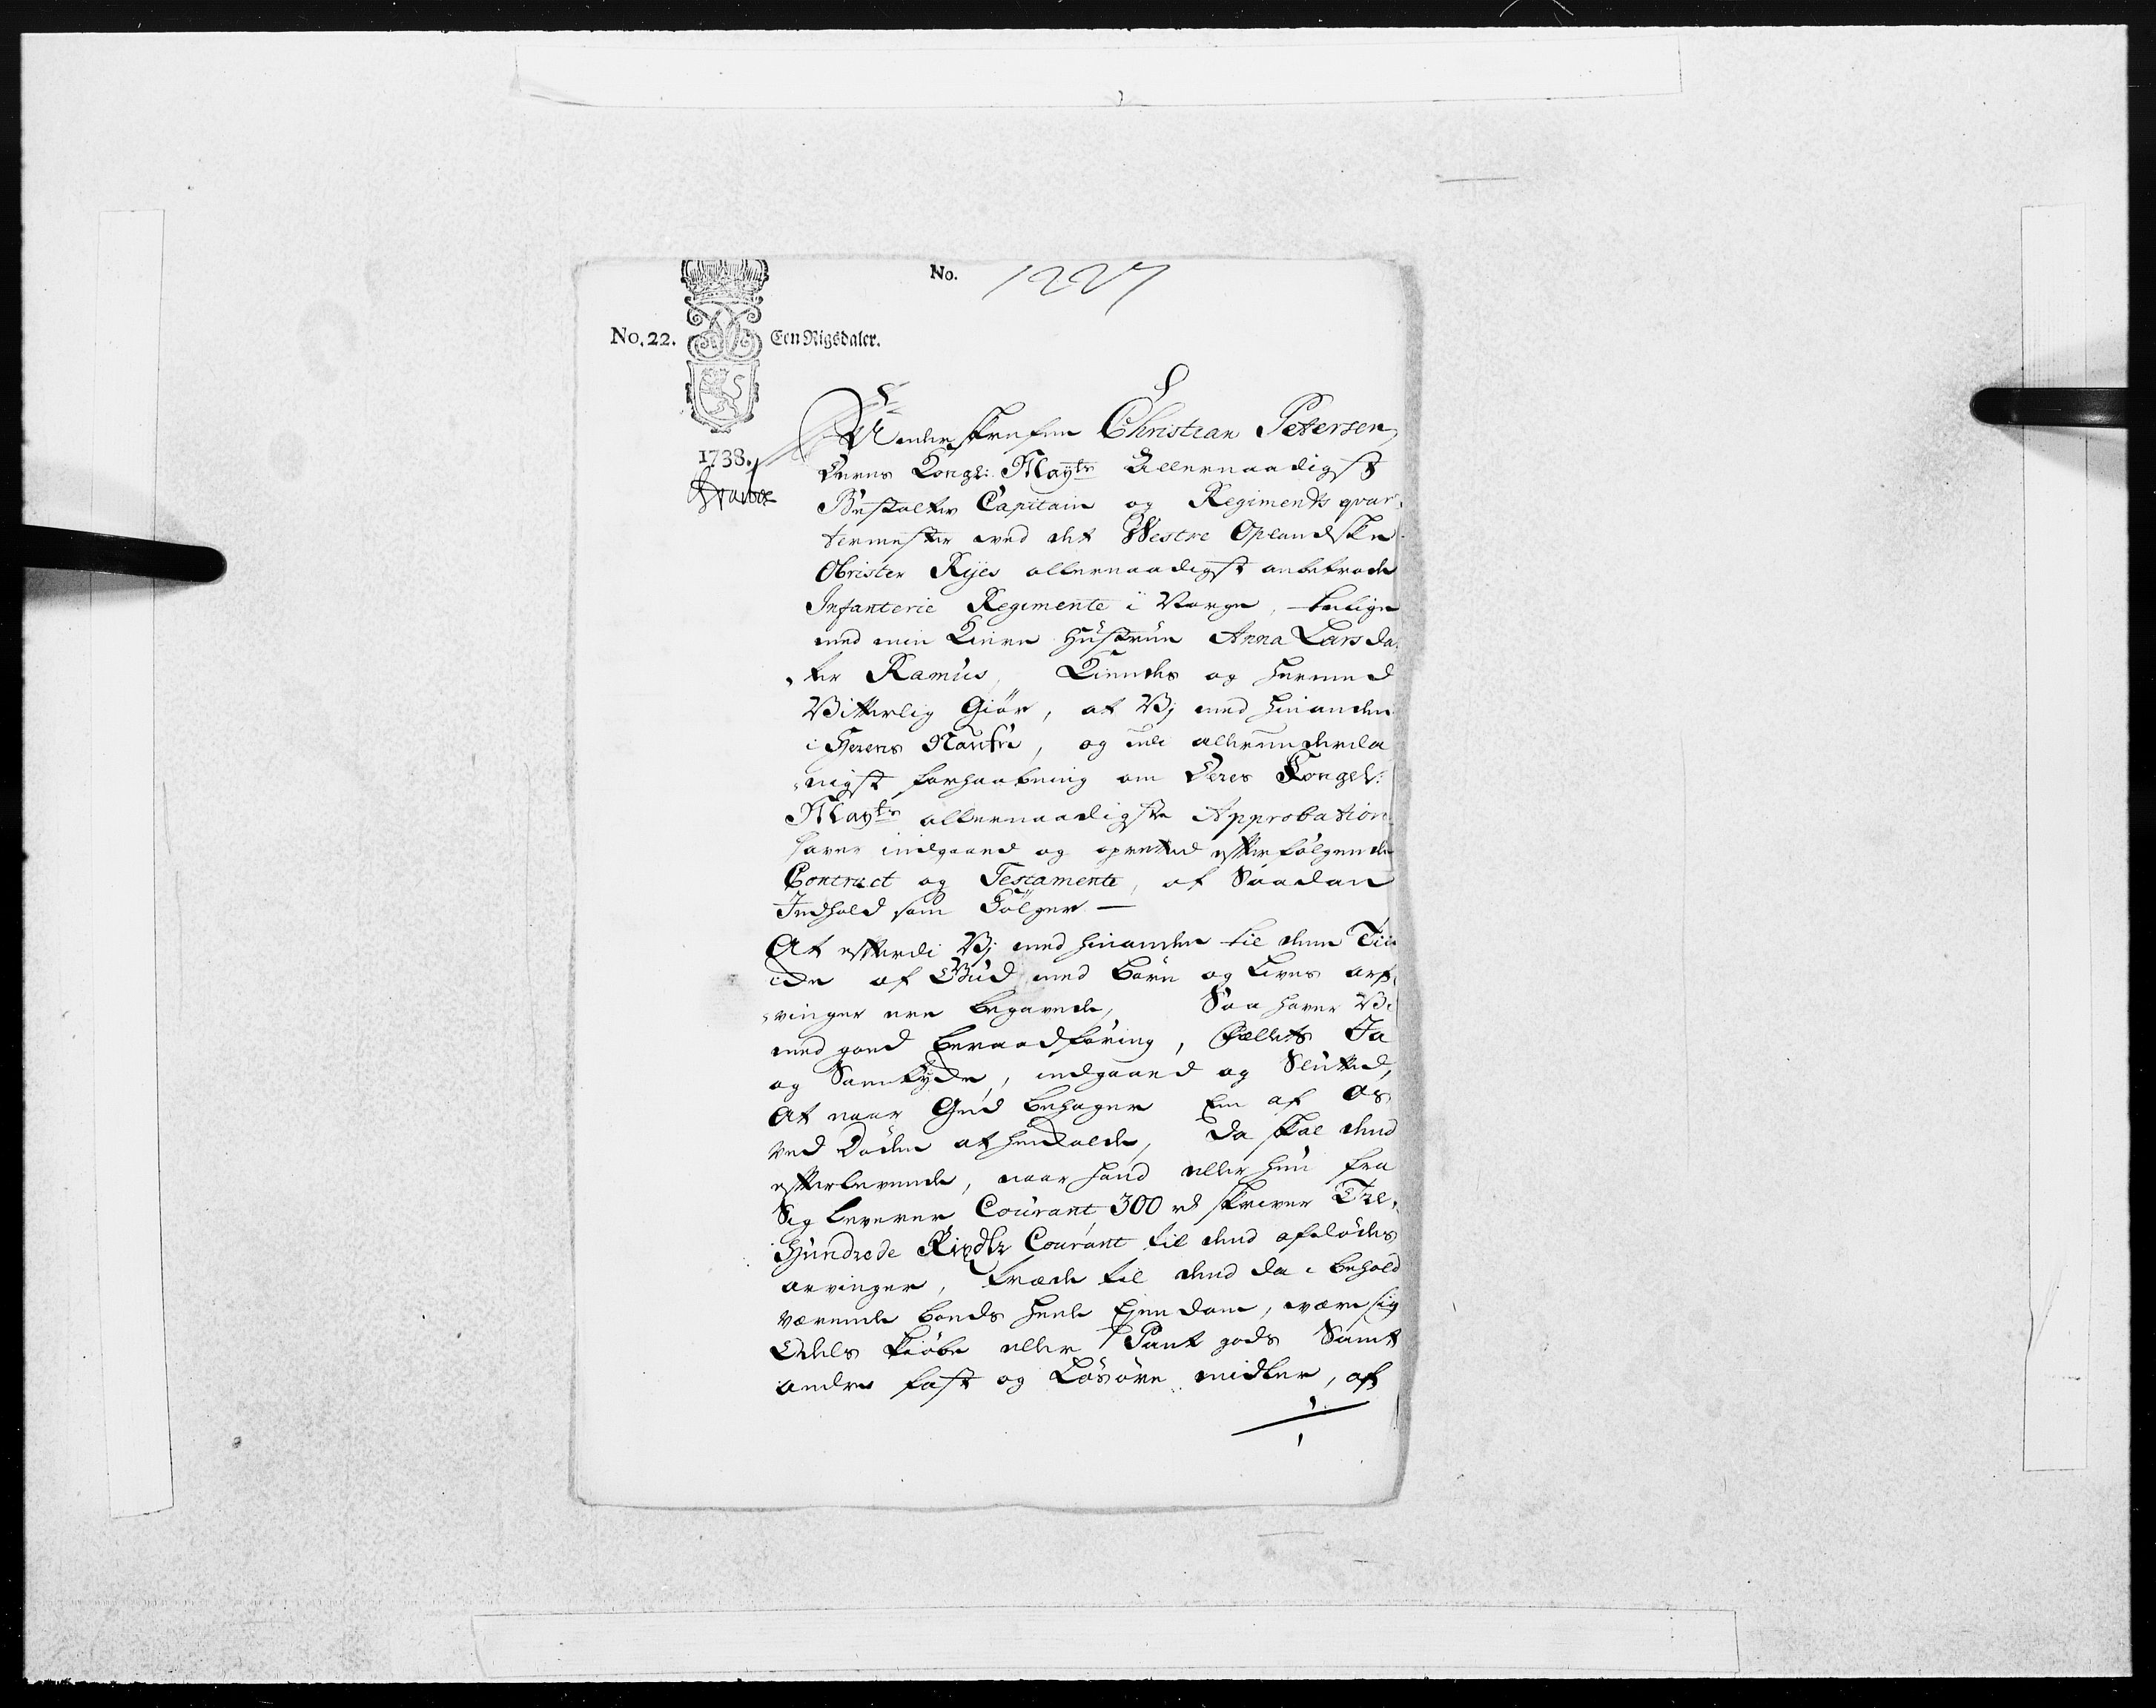 No. 1227
No. 22. Een Rigsdaler.
1738.
Underskrefne Christian Petersen,
Deres Kongl: Mayts Allernaadigst
Bestalter Capitain og Regiments qvar-
termester ved det Westre Oplandske
Obrister Rÿes allernaadigst anbetroede
Infanterie Regimente i Norge, tillige
med min Kiere Hüstrüe Anna Larsda-
ter Ramüs, Kiendes og hermed
Vitterlig Giör, at Vj med hinanden
i Herens Naufn, og udi allerunderda
nigst forhaabning om Deres Kongel:
Mayts allernaadigste Approbation
haver indgaaed og opretted efterfölgende
Contract og Testamente, af Saadan
Indhold som Fölger —
At efterdi Vj med hinanden til denne Tii
ide af Gud med Börn og Livs arf-
vinger ere begavede, Saa haver Vi
med goed beraadföring, fælleds Ja
og Samtÿde, indgaaed og Slutted,
At naar Gud behager Een af Os
ved Döden at henkalde, da skal dend
efterlevende, naar hand eller hun fra
Sig leverer Courant 300 rd skriver Tre
Hundrede Rixdlr Courant til dend afdödes
arvinger, træde til dend da i behold
værende boeds heele Ejendom, være sig
Odels kiöbe eller Pante gods Samt
andre fast og Lösöre midler, af